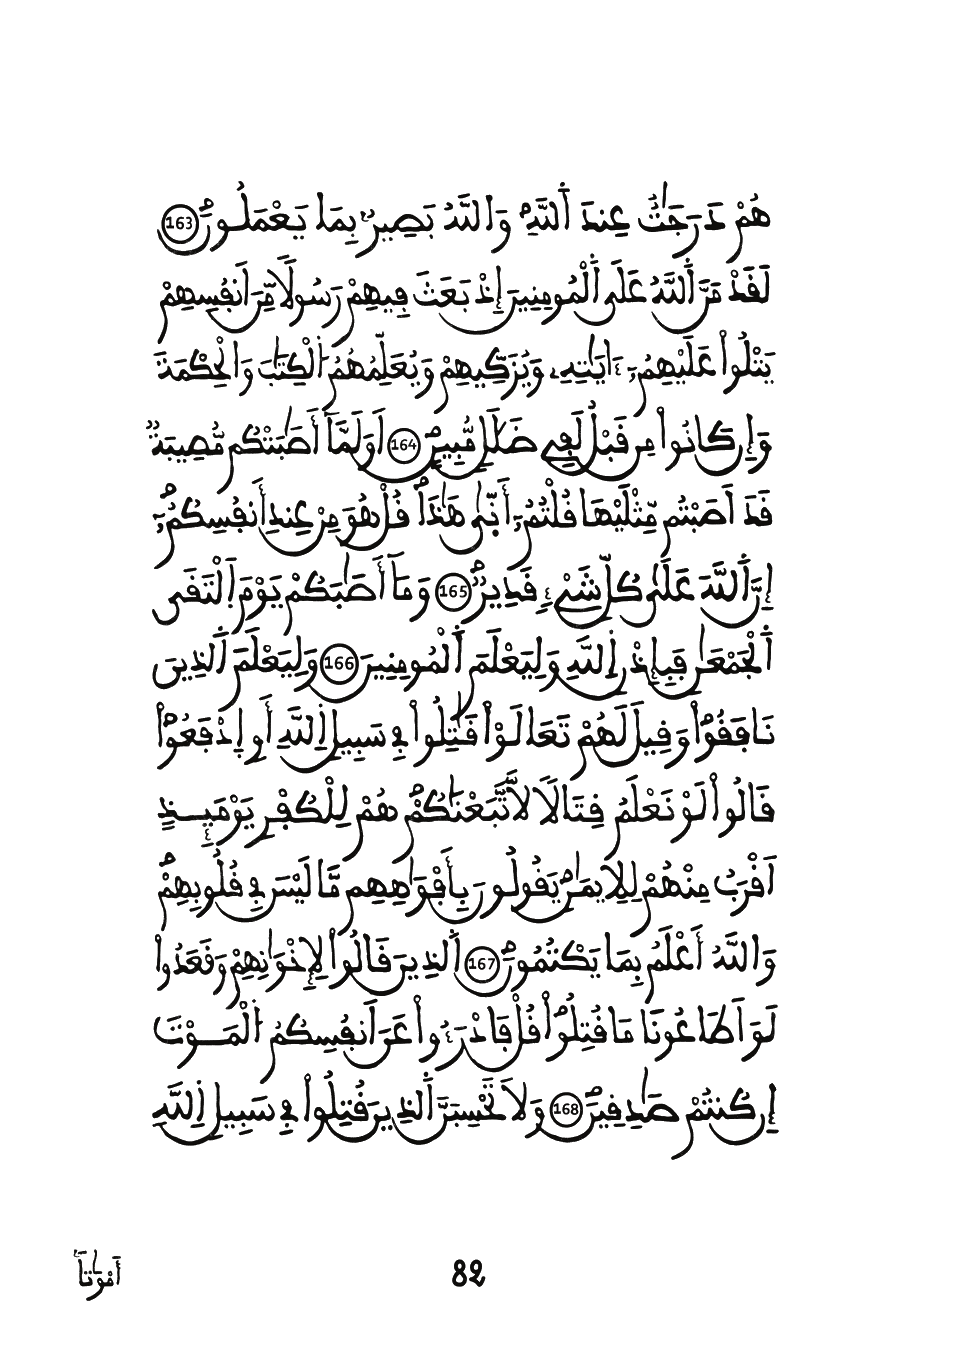 هُمْ دَرَجَٰتٌ عِندَ اَ۬للَّهِۖ وَاللَّهُ بَصِيرُۢ بِمَا يَعْمَلُونَۖ 163
لَقَدْ مَنَّ اَ۬للَّهُ عَلَى اَ۬لْمُومِنِينَ إِذْ بَعَثَ فِيهِمْ رَسُولاٗ مِّنَ اَنفُسِهِمْ
يَتْلُواْ عَلَيْهِمُۥٓ ءَايَٰتِهِۦ وَيُزَكِّيهِمْ وَيُعَلِّمُهُمُ اُ۬لْكِتَٰبَ وَالْحِكْمَةَ
وَإِن كَانُواْ مِن قَبْلُ لَفِے ضَلَٰلٖ مُّبِينٍۖ 164 اَوَلَمَّآ أَصَٰبَتْكُم مُّصِيبَةٞ
قَدَ اَصَبْتُم مِّثْلَيْهَا قُلْتُمُۥٓ أَنّ۪يٰ هَٰذَاۖ قُلْ هُوَ مِنْ عِندِ أَنفُسِكُمُۥٓۖ
إِنَّ اَ۬للَّهَ عَلَىٰ كُلِّ شَےْءٖ قَدِيرٞۖ 165 وَمَآ أَصَٰبَكُمْ يَوْمَ اَ۬لْتَقَى
اَ۬لْجَمْعَٰنِ فَبِإِذْنِ اِ۬للَّهِ وَلِيَعْلَمَ اَ۬لْمُومِنِينَ 166 وَلِيَعْلَمَ اَ۬لذِينَ
نَافَقُواْۖ وَقِيلَ لَهُمْ تَعَالَوْاْ قَٰتِلُواْ فِے سَبِيلِ اِ۬للَّهِ أَوِ اِ۪دْفَعُواْۖ
قَالُواْ لَوْ نَعْلَمُ قِتَالاٗ لَّاتَّبَعْنَٰكُمْۖ هُمْ لِلْكُفْرِ يَوْمَئِذٍ
اَقْرَبُ مِنْهُمْ لِلِايمَٰنِۖ يَقُولُونَ بِأَفْوَٰهِهِم مَّا لَيْسَ فِے قُلُوبِهِمْۖ
وَاللَّهُ أَعْلَمُ بِمَا يَكْتُمُونَۖ 167 اَ۬لذِينَ قَالُواْ لِإِخْوَٰنِهِمْ وَقَعَدُواْ
لَوَ اَطَاعُونَا مَا قُتِلُواْۖ قُلْ فَادْرَءُواْ عَنَ اَنفُسِكُمُ اُ۬لْمَوْتَ
إِن كُنتُمْ صَٰدِقِينَۖ 168 وَلَا تَحْسِبَنَّ اَ۬لذِينَ قُتِلُواْ فِے سَبِيلِ اِ۬للَّهِ
أَمْوَٰتاَۢ
82